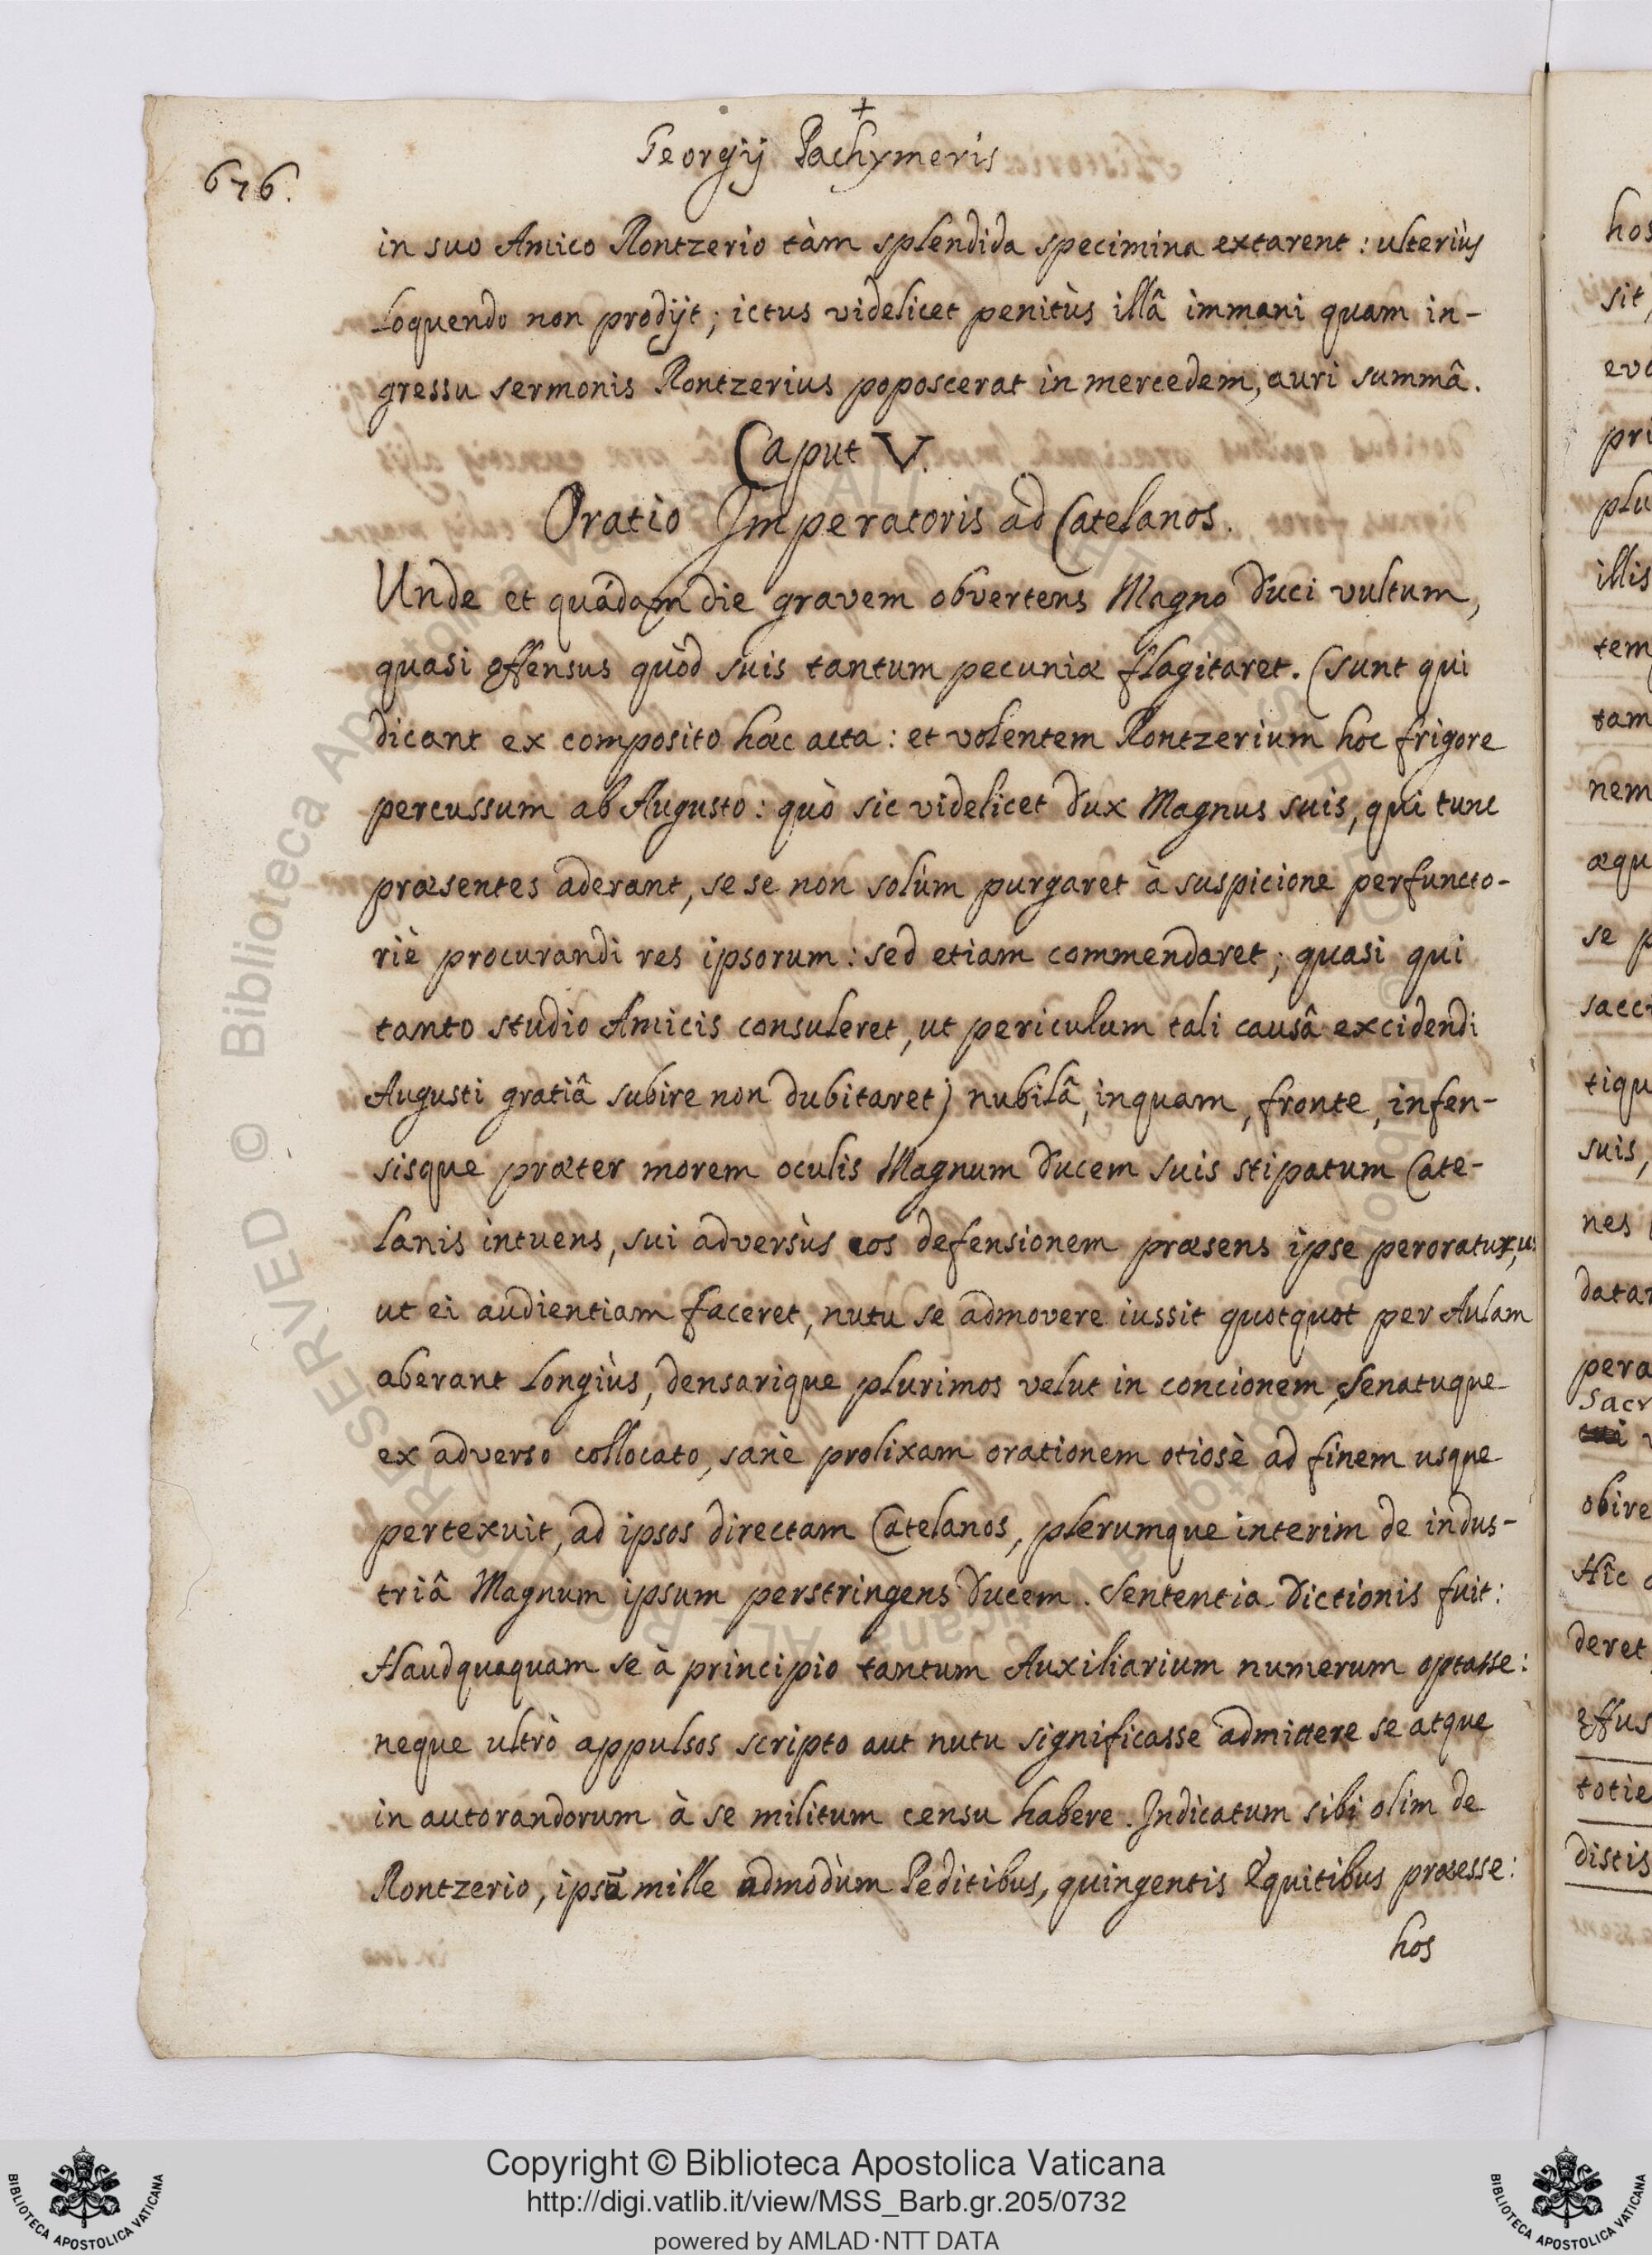 +
Georgij Pachymeris
676.
in suo Amico Rontzerio tàm splendida specimina extarent: ulteriùs
loquendo non prodijt; ictus videlicet penitùs illâ immani quam in-
gressu sermonis Rontzerius poposcerat in mercedem, auri summâ.
Caput V.
Oratio Imperatoris ad Catelanos.
Unde et quâdam die gravem obvertens Magno Duci vultum,
quasi offensus quòd suis tantum pecuniæ flagitaret. (Sunt qui
dicant ex composito hæc acta: et volentem Rontzerium hoc frigore
percussum ab Augusto: quò sic videlicet Dux Magnus suis, qui tunc
præsentes aderant, se se non solùm purgaret à suspicione perfuncto-
riè procurandi res ipsorum: sed etiam commendaret; quasi qui
tanto studio Amicis consuleret, ut periculum tali causâ excidendi
Augusti gratiâ subire non dubitaret) nubilâ, inquam, fronte, infen-
sisque præter morem oculis Magnum Ducem suis stipatum Cate-
lanis intuens, sui adversùs eos defensionem præsens ipse peroraturus,
ut ei audientiam faceret, nutu se admovere iussit quotquot per Aulam
aberant longiùs, densarique plurimos velut in concionem, Senatuque
ex adverso collocato, sanè prolixam orationem otiosè ad finem usque
pertexuit, ad ipsos directam Catelanos, plerumque interim de indus-
triâ Magnum ipsum perstringens Ducem. Sententia Dictionis fuit:
Haudquaquam se à principio tantum Auxiliarium numerum optasse:
neque ultrò appulsos scripto aut nutu significasse admittere se atque
in autorandorum à se militum censu habere. Indicatum sibi olim de
Rontzerio, ipsū mille admodùm Peditibus, quingentis Equitibus præesse:
hos
hos
sit,
plu
illis
tem
tam
nem
æqu
se p
tiqu
suis,
nes
pera
Sacr
obire
Hîc
deret
totie
distis
© Biblioteca Apostolica Vaticana ALL RIGHTS RESERVED
Copyright © Biblioteca Apostolica Vaticana
http://digi.vatlib.it/view/MSS_Barb.gr.205/0732
powered by AMLAD·NTT DATA
BIBLIOTECA APOSTOLICA VATICANA
BIBLIOTECA APOSTOLICA VATICANA